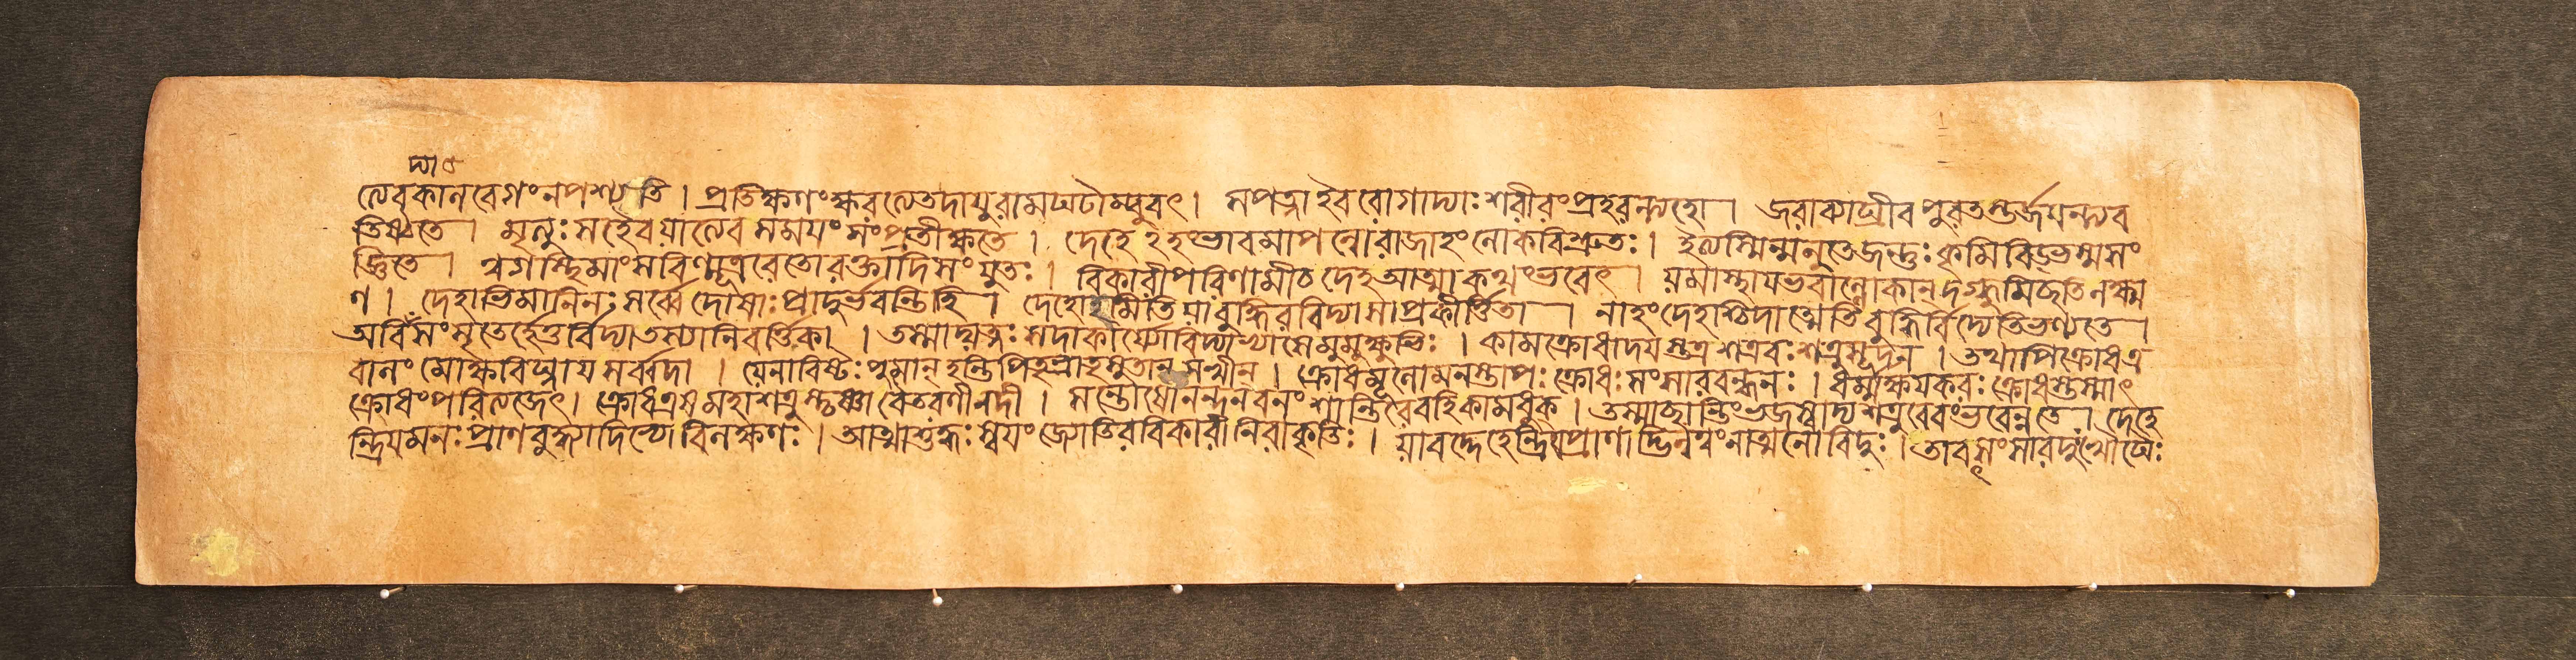 দ্যা ৫
ত্যেবকালবেগংনপশ্যতি । প্রতিক্ষণংক্ষরত্যেতদায়ুরামঘটৌম্বুবৎ । সপত্নাইবরোগাদ্যাঃশরীরংপ্রহরন্ত্যহো । জরাব্যাঘ্রীবপুরতস্তর্জ্জয়ন্ত্যব
তিষ্ঠতে । মৃত্যুঃসহৈবয়াত্যেবসময়ংসংপ্রতীক্ষতে । দেহেঽহংভাবমাপন্নোরাজাহংলোকবিশ্রুতঃ । ইত্যস্মিন্মনুতেজন্তুঃকৃমিবিড্ভস্মসং
জ্ঞিতে । ত্বগস্থিমাংসবিণ্মূত্ররেতোরক্তাদিসংয়ুতঃ । বিকারীপরিণামীচদেহআত্মাকথংভবেৎ । য়মাস্থায়ভবাল্লোকান্দগ্ধুমিচ্ছতিলক্ষ্ম
ণ । দেহাভিমানিনঃসর্ব্বেদোষাঃপ্রাদুর্ভবন্তিহি । দেহোহমিতিয়াবুদ্ধিরবিদ্যাসাপ্রকীর্ত্তিতা । নাহংদেহশ্চিদাত্মেতিবুদ্ধির্বিদ্যেতিভণ্যতে ।
অবিসংসৃতের্হেতুর্বিদ্যাতস্যানিবর্ত্তিকা । তস্মাদ্যত্নঃসদাকার্য্যোবিদ্যাভ্যাসেমুমুক্ষুভিঃ । কামক্রোধাদয়স্তত্রশত্রবঃশত্রুসূদন । তথাপিক্রোধএ
বালংমোক্ষবিঘ্নায়সর্ব্বদা । য়েনাবিষ্টঃপুমান্হন্তিপিতৃভ্রাতৃসুতান্সখীন্ । ক্রোধমূলোমনস্তাপঃক্রোধঃসংসারবন্ধনঃ । ধর্ম্মক্ষয়করঃক্রোধস্তস্মাৎ
ক্রোধংপরিত্যজেৎ । ক্রোধএষমহাশত্রুস্তৃষ্ণাবৈতরণীনদী । সন্তোষোনন্দনবনংশান্তিরেবহিকামধুক্ । তস্মাচ্ছান্তিংভজস্বাদ্যশত্রুরেবংভবেন্নতে । দেহে
ন্দ্রিয়মনঃপ্রাণবুদ্ধ্যাদিভ্যোবিলক্ষণঃ । আত্মাশুদ্ধঃস্বয়ংজ্যোতিরবিকারীনিরাকৃতিঃ । য়াবদ্দেহেন্দ্রিয়প্রাণাদ্ভিন্নত্বংনাত্মনোবিদুঃ । তাবৎসংসারদুঃখৌঘৈঃ